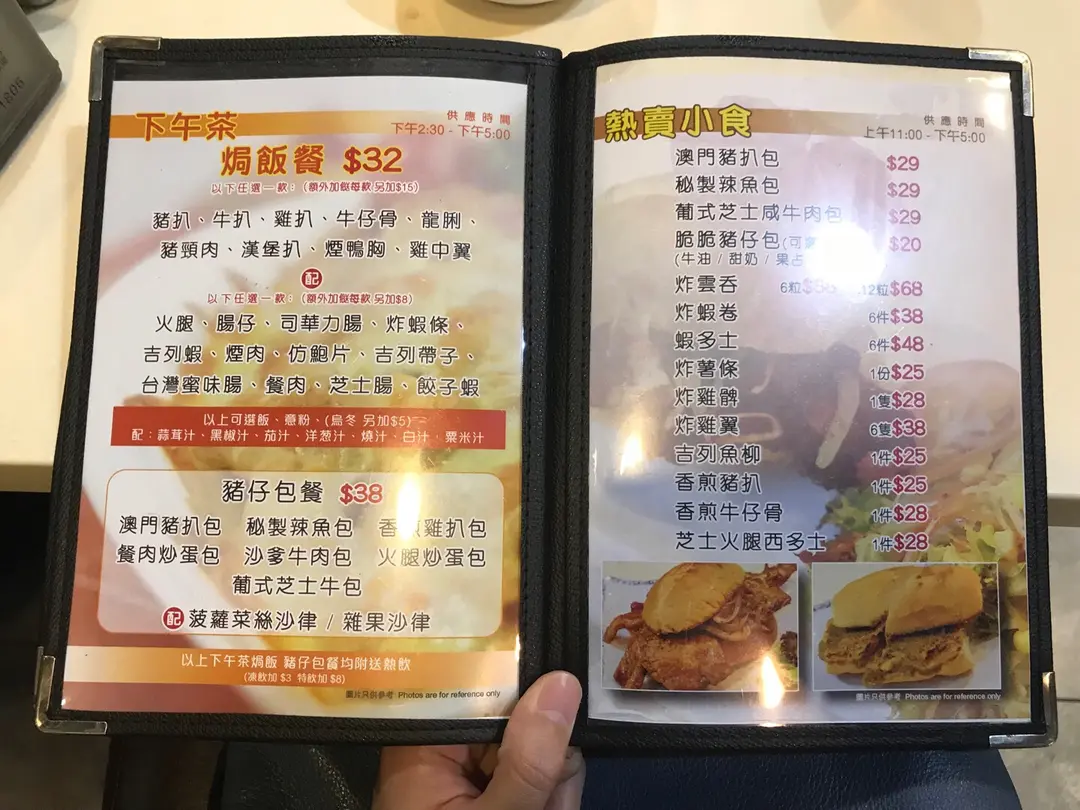 下午茶
供應時間
下午2:30 - 下午5:00
焗飯餐 $32
以下任選一款：(額外加餸每款另加$15)
豬扒、牛扒、雞扒、牛仔骨、龍脷、
豬頸肉、漢堡扒、煙鴨胸、雞中翼
配
以下任選一款：(額外加餸每款另加$8)
火腿、腸仔、司華力腸、炸蝦條、
吉列蝦、煙肉、仿鮑片、吉列帶子、
台灣蜜味腸、餐肉、芝士腸、餃子蝦
以上可選飯、意粉、(烏冬 另加$5)
配：蒜茸汁、黑椒汁、茄汁、洋葱汁、燒汁、白汁、粟米汁
豬仔包餐 $38
澳門豬扒包 秘製辣魚包 香煎雞扒包
餐肉炒蛋包 沙爹牛肉包 火腿炒蛋包
葡式芝士牛包
配 菠蘿菜絲沙律 / 雜果沙律
以上下午茶焗飯 豬仔包餐均附送熱飲
(凍飲加 $3 特飲加 $8)
圖片只供參考 Photos are for reference only
熱賣小食
供應時間
上午11:00 - 下午5:00
澳門豬扒包 $29
秘製辣魚包 $29
葡式芝士咸牛肉包 $29
脆脆豬仔包(可 $20
(牛油 / 甜奶 / 果占
炸雲吞 6粒 12粒$68
炸蝦卷 6件$38
蝦多士 6件$48
炸薯條 1份$25
炸雞髀 1隻$28
炸雞翼 6隻$38
吉列魚柳 1件$25
香煎豬扒 1件$25
香煎牛仔骨 1件$28
芝士火腿西多士 1件$28
圖片只供參考 Photos are for reference only